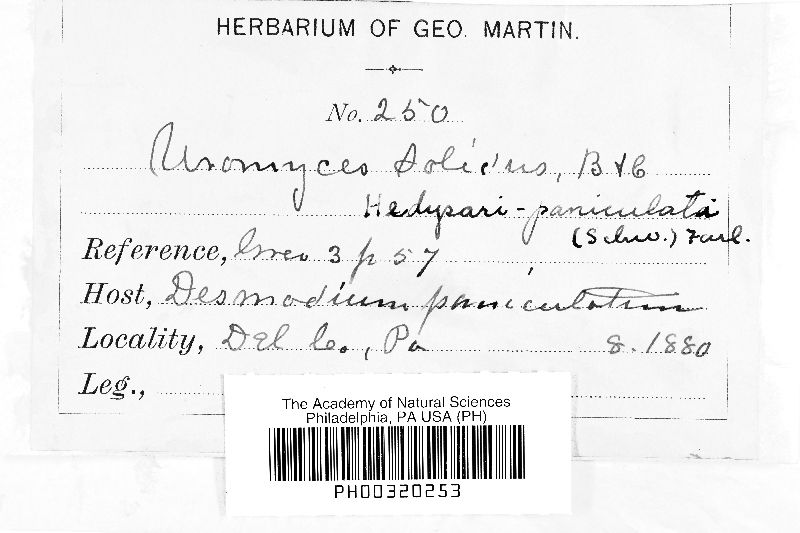 HERBARIUM OF GEO. MARTIN.
No. 250
Uromyces Solidus, B & C
Hedysari-paniculata
(Schw.) Farl.
Reference, Grev 3 p 57
Host, Desmodium paniculatum
Locality, Del Co., Pa 8. 1880
Leg.,
The Academy of Natural Sciences
Philadelphia, PA USA (PH)
PH00320253